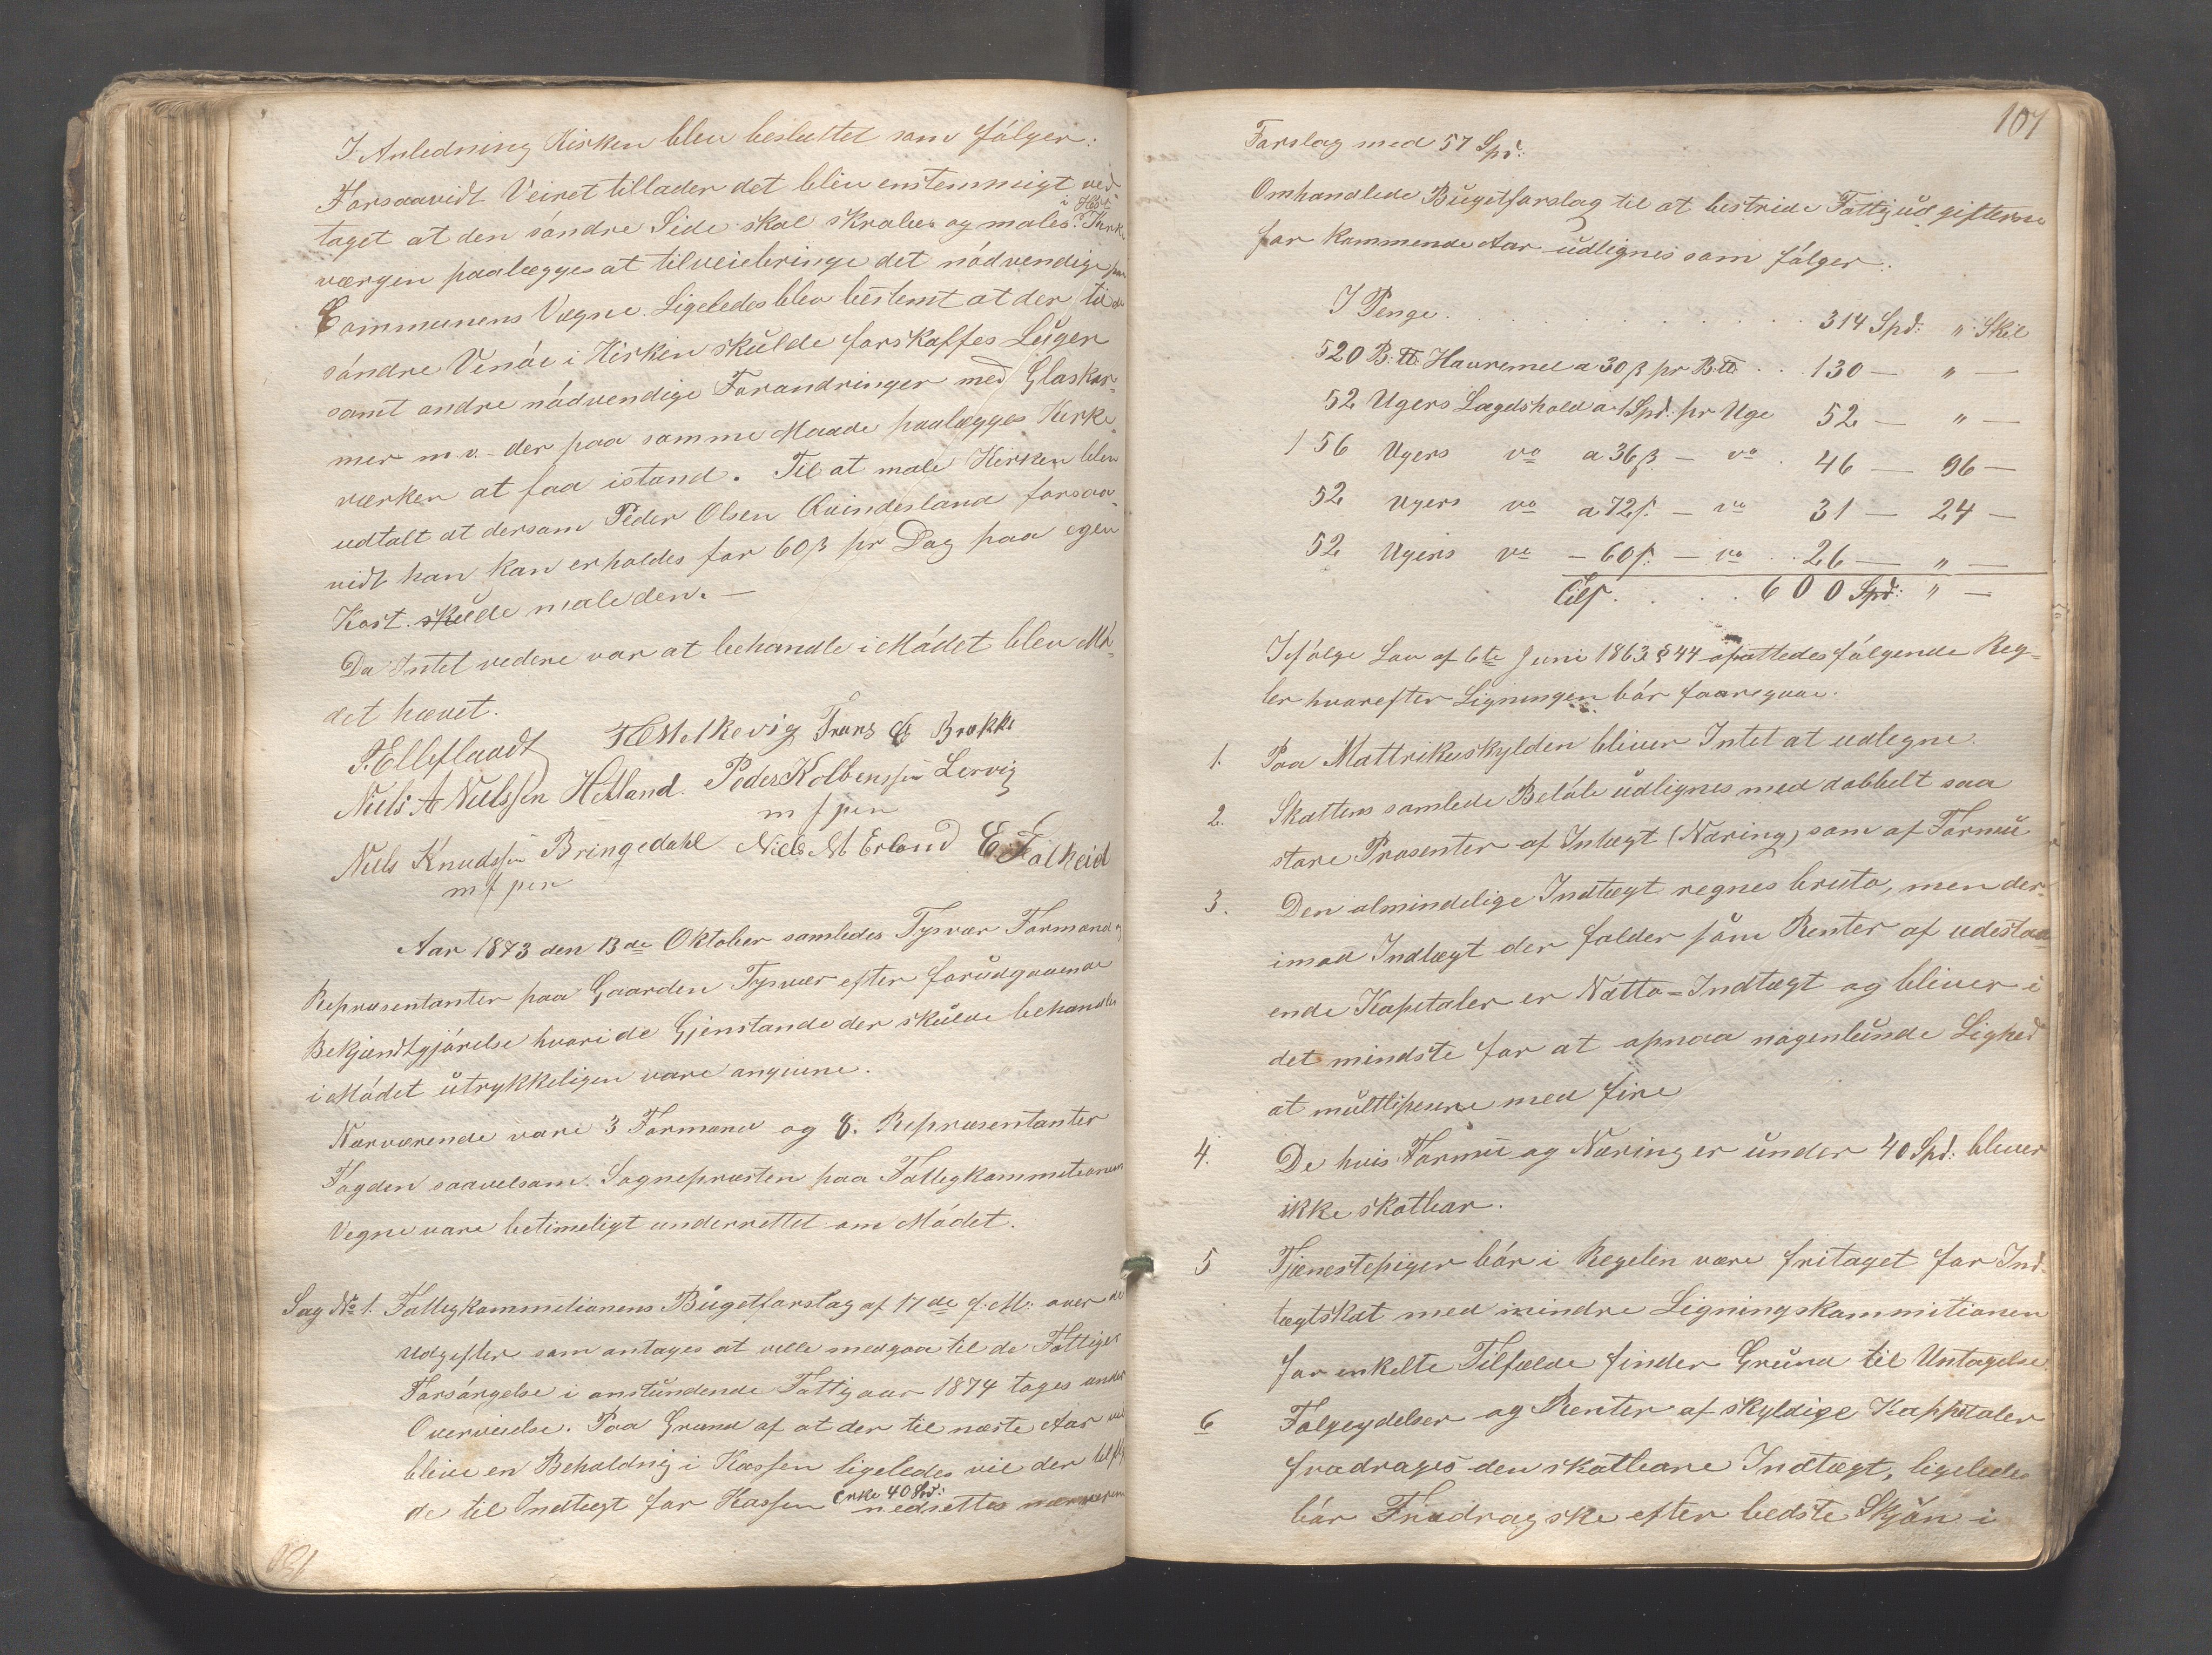 I Anledning Kirken blev besluttet som fólger:
Forsaavidt Veiret tillader det blev enstemmigt ved-
taget at den sóndre Side skal skrabes og males i Höst. Kirke
værgen paalægges at tilveiebringe det nódvendige paa
Communens Vægne. Ligeledes blev bestemt at der til de
sóndre Vinóe i Kirken skulde forskaffes Luger
samt andre nódvendige Forandringer med Glaskar-
mer m v. der paa samme Maade paalægges Kirke-
værken at faa istand. Til at male Kirken blev
udtalt at dersom Peder Olsen Qvindesland forsaa-
vidt han kan erholdes for 60 ẞ pr Dag paa egen
Kost skulde male den. —
Da Intet videre var at behandle i Módet blev Mó-
det hævet.
Frans Brokke
Niels A Nielssen Hetland. Peder Kolbenssen Lervig
m f pen
Niels Knudssen Bringedahl Niels M Erland E. Falkeid
m f pen
Aar 1873 den 13de Oktober samledes Tysvær Formænd og
Repræsentanter paa Gaarden Tysvær efter forudgaaende
Bekjendtgjórelse hvori de Gjenstande der skulde behandles
i Módet utrykkeligen vare angivne.
Nærværende vare 3 Formænd og 8. Repræsentanter
Fogden saavelsom Sognepræsten paa Fattigkommitionens
Vegne vare betimeligt underrettet om Módet.
Sag No 1. Fattigkommitionens Bugetforslag af 17de f. M: over de
Udgifter som antages at ville medgaa til de Fattiges
Forsórgelse i anstundende Fattigaar 1874 toges under
Overveielse. Paa Grund af at der til næste Aar vil
blive en Beholdnig i Kassen ligeledes vil der tilfly
de til Indtægt for Kassen cirke 40 Spd: nedsettes nærværen
130
107
Forslag med 57 Spd:
Omhandlede Bugetforslag til at bestride Fattigudgifterne
for kommende Aar udlignes som fólger:
I Penge . . . . . . . . . . 314 Spd: " Skil
520 B: ℔ Havremel a 30 ẞ pr B: ℔ . . 130 — " —
52 Ugers Lægdshold a 1 Spd: pr Uge 52 — " —
156 Ugers do a 36 ẞ — do . 46 — 96 —
52 Ugers do a 72 ẞ — do 31 — 24 —
52 Ugers do — 60 ẞ — do . . 26 — " —
Tils . . . . . 600 Spd: " —
Ifólge Lov af 6te Juni 1863 § 44 afattedes fólgende Reg=
ler hvorefter Ligningen bór foaregaae.
1. Paa Mattrikuskylden bliver Intet at udligne
2. Skattens samlede Belób udlignes med dobbelt saa
store Prosenter af Intægt (Næring) som af Formu
3. Den almindelige Indtægt regnes bruto, men der-
imod Indtægt der falder som Renter af udestaa
ende Kapitaler er Netto=Indtægt og bliver i
det mindste for at opnaa nogenlunde Lighed
at multlipsere med fire
4. De hvis Formu og Næring er under 40 Spd: bliver
ikke skatbar.
5 Tjenestepiger bór i Regelen være fritaget for Ind-
tægtskat med mindre Ligningskommitionen
for enkelte Tilfælde finder Grund til Untagelse.
6 Fólgeydelser og Renter af skyldige Kappitaler
fradrages den skatbare Indtægt, ligeledes
bór Fradrag ske efter bedste Skjón i